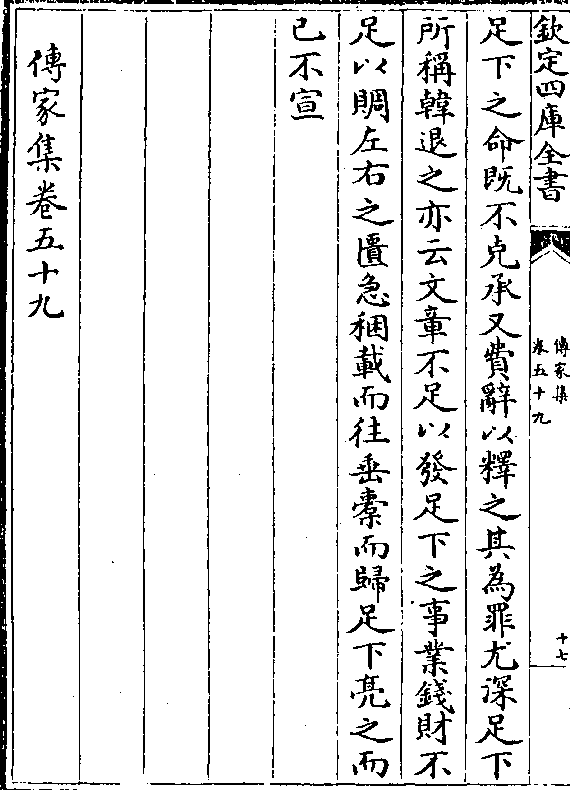 欽定四庫全書
傳家集
卷五十九
十七
足下之命既不克承又費辭以釋之其為罪尤深足下
所稱韓退之亦云文章不足以發足下之事業錢財不
足以賙左右之匱急稇載而往垂橐而歸足下亮之而
已不宣
傳家集卷五十九